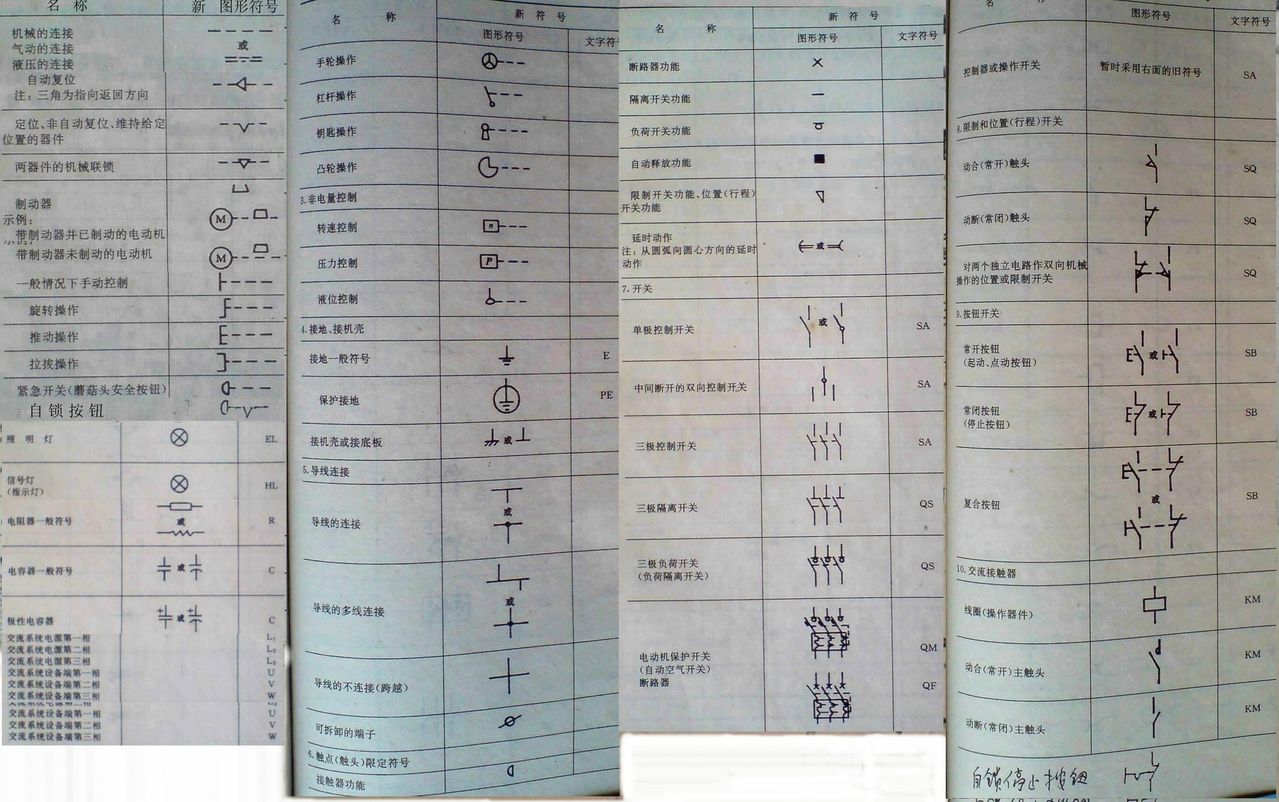 名 称 新 图形符号
机械的连接
气动的连接 或
液压的连接
自动复位
注：三角为指向返回方向
定位、非自动复位、维持给定
位置的器件
两器件的机械联锁
制动器
示例：
M
带制动器并已制动的电动机
带制动器未制动的电动机
M
一般情况下手动控制
旋转操作
推动操作
拉拔操作
紧急开关(蘑菇头安全按钮)
自锁按钮
照 明 灯 EL
信号灯 HL
(指示灯)
电阻器一般符号 或 R
电容器一般符号 或 C
极性电容器 或 C
交流系统电源第一相 L₁
交流系统电源第二相 L₂
交流系统电源第三相 L₃
交流系统设备端第一相 U
交流系统设备端第二相 V
交流系统设备端第三相 W
交流系统设备端第一相 U
交流系统设备端第二相 V
交流系统设备端第三相 W
名 称 新 符 号
图形符号 文字符
手轮操作
杠杆操作
钥匙操作
凸轮操作
3.非电量控制
转速控制 n
压力控制 P
液位控制
4.接地、接机壳
接地一般符号 E
保护接地 PE
接机壳或接底板 或
5.导线连接
导线的连接 或
导线的多线连接 或
导线的不连接(跨越)
可拆卸的端子
6.触点(触头)限定符号
接触器功能
名 称 新 符 号
图形符号 文字符号
断路器功能
隔离开关功能
负荷开关功能
自动释放功能
限制开关功能、位置(行程)
开关功能
延时动作 或
注：从圆弧向圆心方向的延时
动作
7.开关
单极控制开关 或 SA
中间断开的双向控制开关 SA
三极控制开关 SA
三极隔离开关 QS
三极负荷开关 QS
(负荷隔离开关)
电动机保护开关 QM
(自动空气开关)
断路器 QF
名 称
图形符号 文字符号
控制器或操作开关 暂时采用右面的旧符号 SA
8.限制和位置(行程)开关
动合(常开)触头 SQ
动断(常闭)触头 SQ
对两个独立电路作双向机械 SQ
操作的位置或限制开关
9.按钮开关
常开按钮 或 SB
(起动、点动按钮)
常闭按钮 或 SB
(停止按钮)
复合按钮 或 SB
10.交流接触器
线圈(操作器件) KM
动合(常开)主触头 KM
动断(常闭)主触头 KM
自锁停止按钮